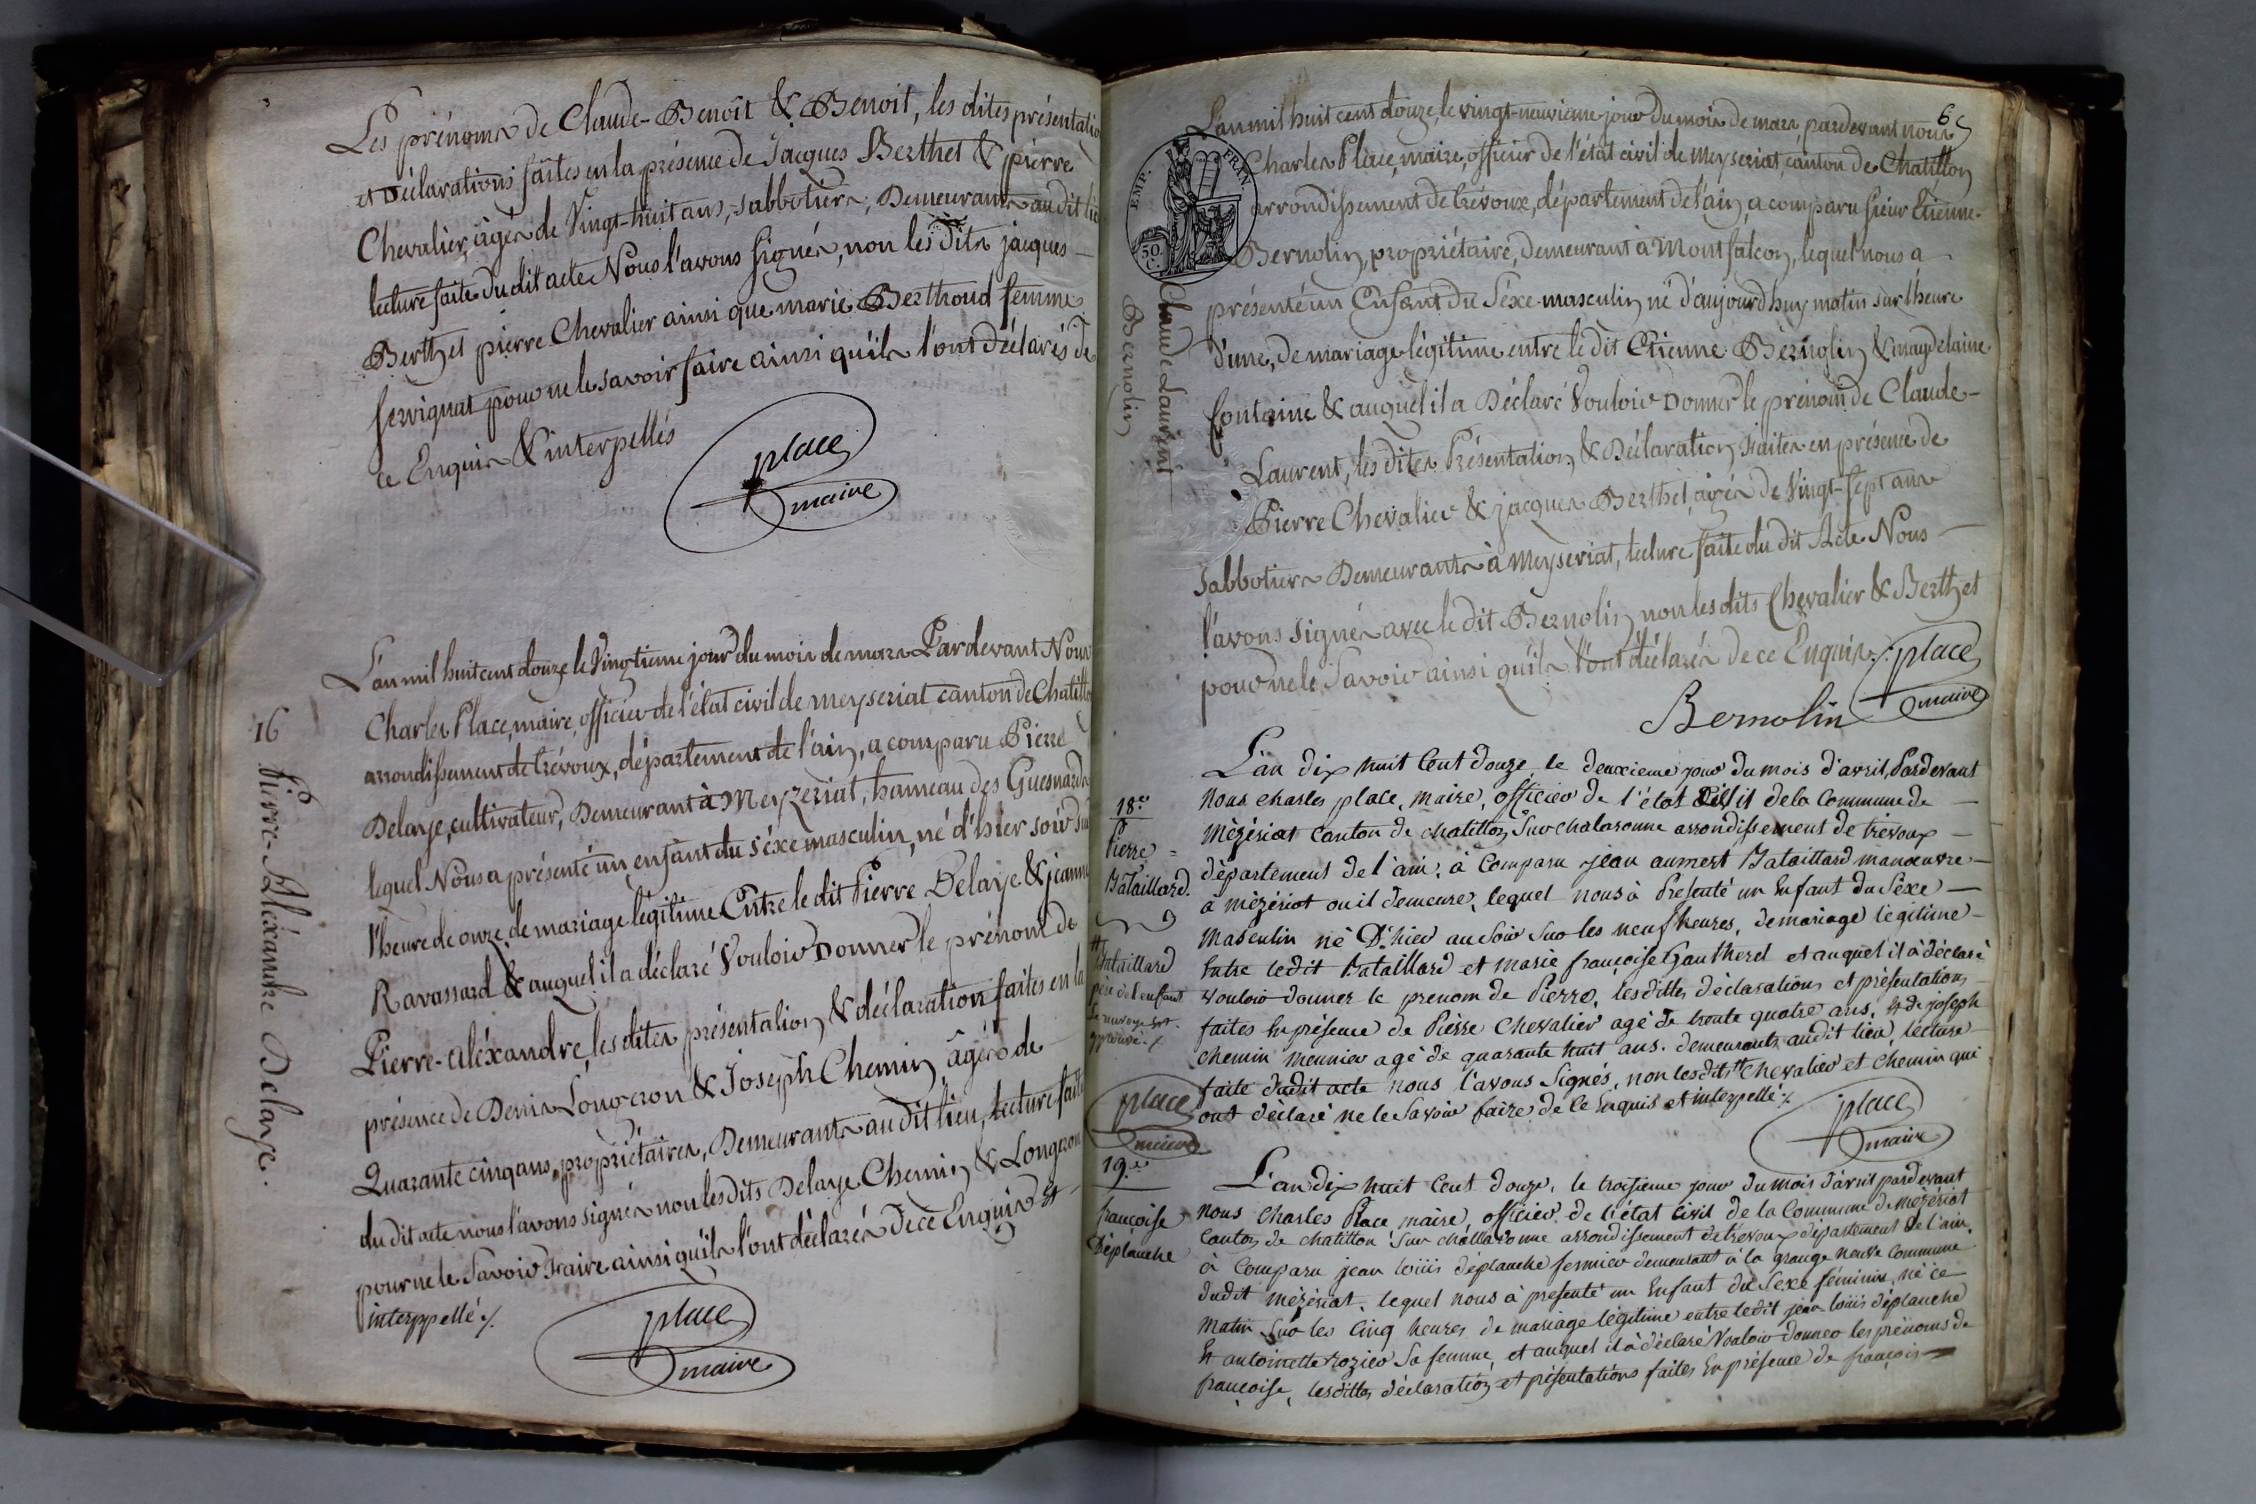 Les prénoms de Claude-Benoît & Benoit, les dites présentatio
et Déclarations faites en la présence de Jacques Berthet & pierre
Chevalier, âgés de Vingt-huit ans, sabbotiers, Demeurants au dit lieu
lecture faite du dit acte Nous l'avons signés, non les dits jacques —
Berthet pierre Chevalier ainsi que marie Berthoud femme
servignat pour ne le savoir faire ainsi qu'ils l'ont déclarés de
ce Enquis & interpellés
place
maire
L'an mil huit cent douze le Vingtieme jour du mois de mars Pardevant Nous
Charles Place, maire, officier de l'état civil de meyseriat canton de Chatillo
arrondissement de trévoux, département de l'ain, a comparu Pierre
Delaye, cultivateur, Demeurant à Meyzeriat, hameau des Guesnards
lequel Nous a présenté un enfant du séxe masculin, né d'hier soir sur
l'heure de onze, de mariage légitime Entre le dit Pierre Delaye & jeanne
Ravassard & auquel il a déclaré Vouloir Donner le prénom de
Pierre-aléxandre, les dites présentation & déclaration faites en la
présence de Denis Longeron & Joseph Chemin, âgés de
Quarante cinq ans, propriétaires, Demeurants au dit lieu, lecture faite
du dit acte nous l'avons signés non les dits Delaye Chemin & Longeron
pour ne le Savoir Faire ainsi qu'ils l'ont déclarés de ce Enquis et
interppellé ./.
place
maire
16
Pierre-Aléxandre Delaye.
6
L'an mil huit cent douze, le vingt-neuvieme jour du mois de mars, pardevant nous
Charles Place, maire, officier de l'état civil de meyseriat, canton de Chatillon
arrondissement de trévoux, département de l'ain, a comparu sieur Etienne-
Bernolin, propriétaire, demeurant à Montfalcon, lequel nous a —
présenté un Enfant du Séxe masculin né d'aujourd'huy matin sur l'heure
d'une, de mariage légitime entre le dit Etienne Bernolin & magdelaine
fontaine & auquel il a Déclaré Vouloir Donner le prénom de Claude-
Laurent, les dites Présentation & Déclaration Faites en présence de
Pierre Chevalier & jacques Berthet, agés de Vingt-sept ans
sabbotiers Demeurants à meyseriat, lecture faite du dit Acte Nous —
l'avons signés avec le dit Bernolin non les dits Chevalier & Berthet
pour ne le Savoir ainsi qu'ils l'ont déclarés de ce Enquis ./.
place
maire
Bernolin
EMP. FRAN.
50.
C.
Claude Laurent
Bernolin
L'an dix huit Cent Douze, le deuxieme jour du mois d'avril, Pardevant
Nous charles place, maire, officier de l'état Civil de la Commune de —
Mézériat Canton de chatillon Sur chalaronne arrondissement de trévoux —
département de l'ain, à Comparu jean aumert Bataillard manœuvre —
à mézériat ou il demeure, lequel nous à Présenté un Enfant du Séxe —
Masculin né D'hier au Soir Sur les neuf heures, de mariage légitime —
Entre ledit Bataillard et marie françoise Gautheret et auquel il à déclaré
Vouloir donner le prenom de Pierre, lesdittes déclarations et présentations
faites En présence de Pierre Chevalier agé de trente quatre ans, et de joseph
Chemin Meunier agé de quarante huit ans. demeurants audit lieu, lecture
faite dudit acte nous l'avons Signés, non lesdits # Chevalier et Chemin qui
ont déclaré ne le Savoir faire de Ce Enquis et interpellé ./.
place
maire
18.e
Pierre =
Bataillard.
# Bataillard
père de l'enfant
approuvé ./.
place
maire
19.e
françoise
Déplanche
L'an dix huit Cent douze, le troisieme jour du mois d'avril pardevant
Nous Charles Place maire, officier de l'état Civil de la Commune de mézériat
Canton de chatillon Sur challaronne arrondissement de trévoux département de l'ain.
à Comparu jean loüis déplanche fermier demeurant à la grange neuve Commune
dudit mézériat, lequel nous à présenté un Enfant du Sexe féminin, né ce
Matin Sur les Cinq heures de mariage légitime entre ledit jean loüis déplanche
Et antoinette rozier Sa femme, et auquel il à déclaré Vouloir donner les prénoms de
françoise, lesdittes déclaration et présentations faites En présence de françois —